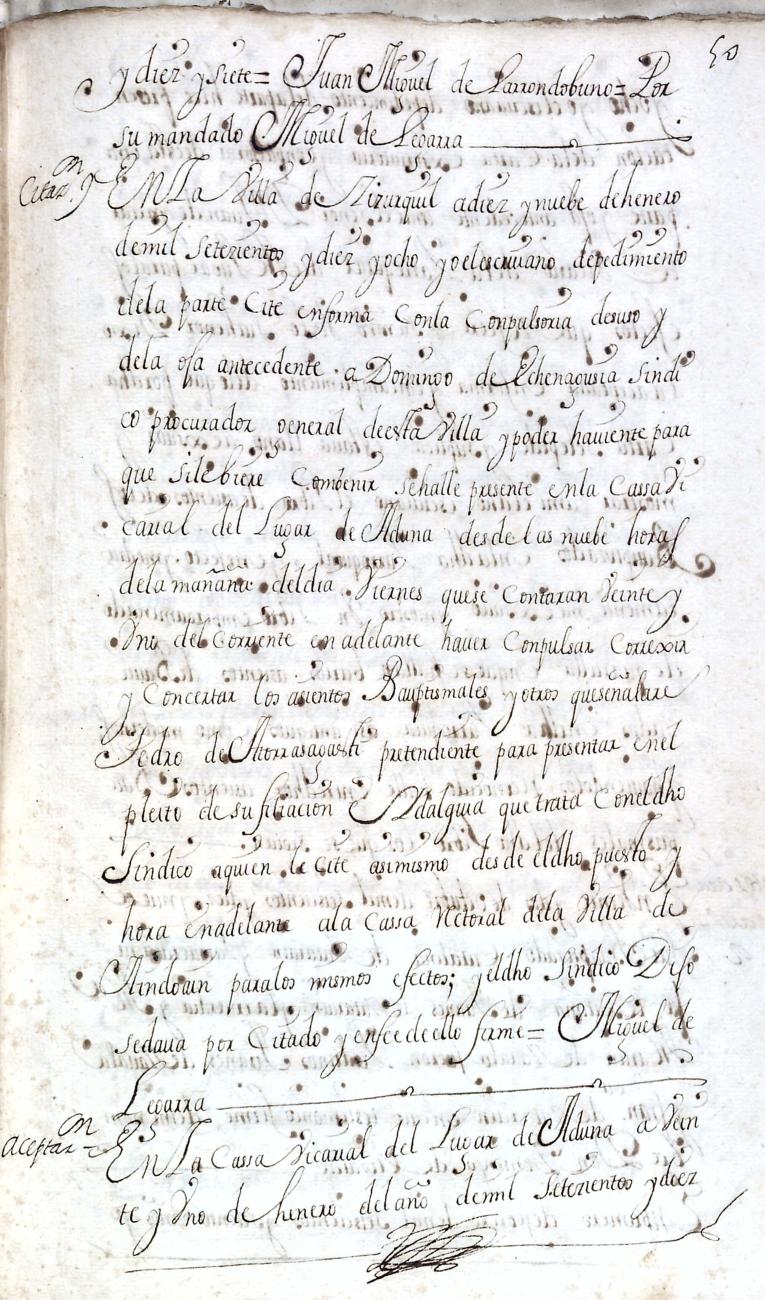 50
y diez y siete = Juan Miguel de Larrondobuno = Por
su mandado Miguel de Legarra
Citaz.n
EN La Villa de Aizurquil a diez y nuebe de henero
de mil setezientos y diez y ocho yo el escriuano de pedimiento
de la parte Cite en forma Con la Conpulsoria desuso y
dela ofa antecedente a Domingo de Echenagusia Sindi
co procurador general de esta Villa y poder hauiente para
que si le biere Combenir se halle presente en la Cassa Vi
carial del Lugar de Aduna desde las nuebe horas
dela mañana del dia Viernes que se Contaran Veinte y
Vno del Corriente en adelante hauer Conpulsar Correxir
y Concertar los asientos Bauptismales y otros que señalare
Pedro de Atorrasagasti pretendiente para presentar en el
pleito de su filiacion e Ydalguia que trata Con el dho
Sindico a quien le Cite asimismo desde el dho puesto y
hora en adelante a la Cassa Retoral dela Villa de
Aindoain para los mismos efectos; y el dho Sindico Dijo
se daua por Citado y en fee de ello firme = Miguel de
Legarra
aceptaz.n
EN La Cassa Vicarial del Lugar de Aduna a Vein
te y Vno de henero del año de mil setezientos y diez